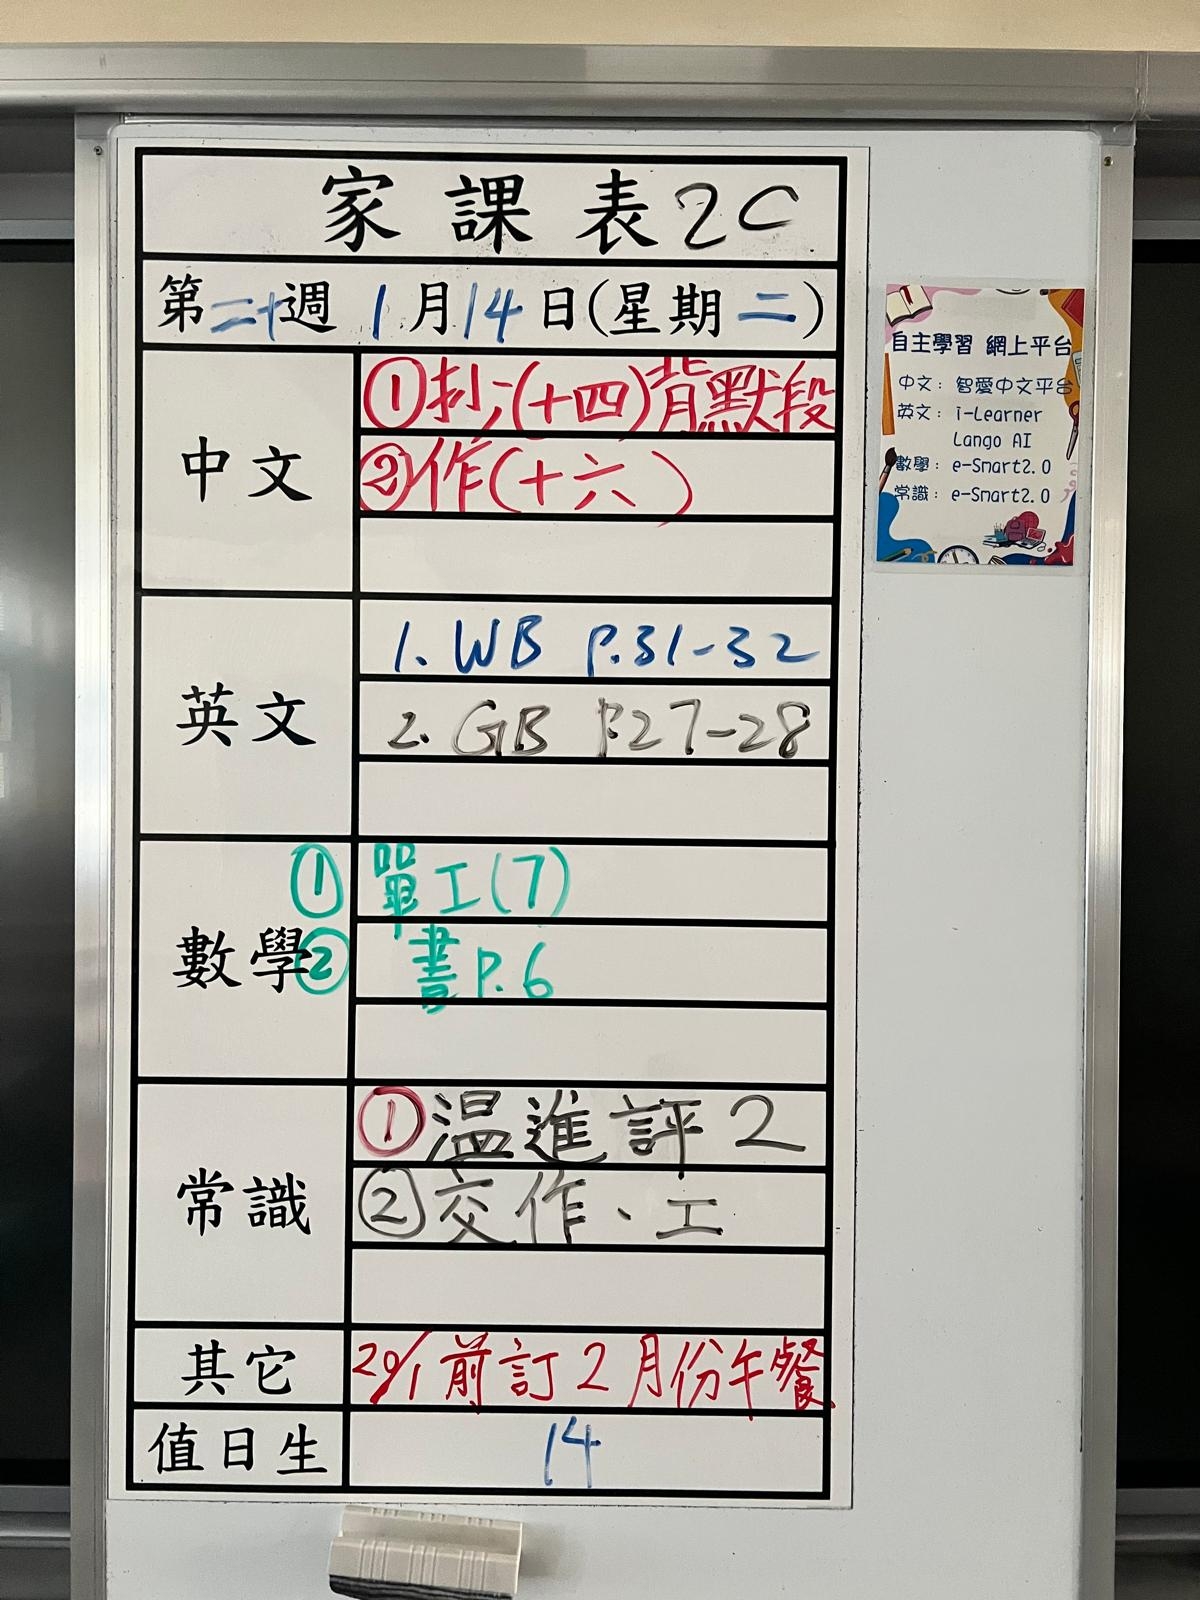 家課表2C
第二十週 1月14日(星期二)
中文
①抄(十四)背默段
②作(十六)
英文
1. WB P.31-32
2. GB P.27-28
數學
① 單工(7)
② 書P.6
常識
①温進評2
②交作、工
其它
20/1前訂2月份午餐
值日生
14
自主學習 網上平台
中文：智愛中文平台
英文：i-Learner
Lango AI
數學：e-Smart2.0
常識：e-Smart2.0